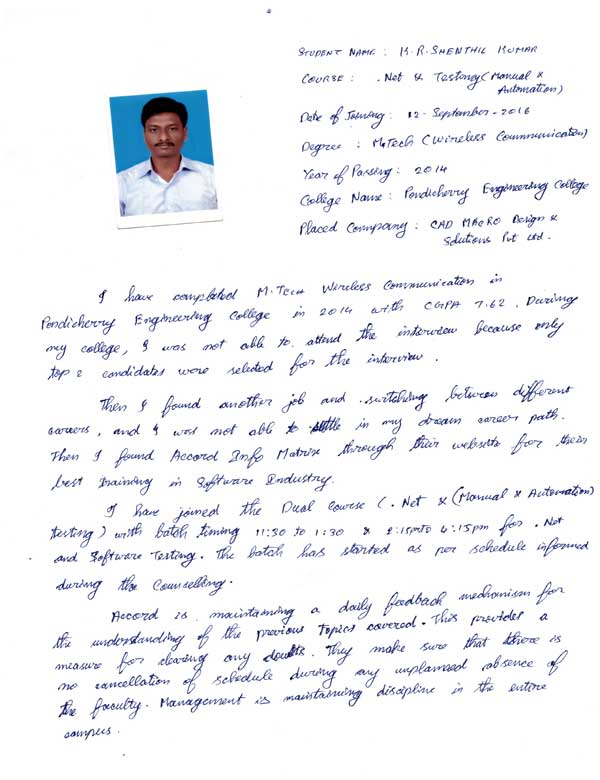 STUDENT NAME : K.R. SHENTHIL KUMAR
COURSE : .Net & Testing (Manual &
Automation)
Date of Joining : 12 - September - 2016
Degree : M.Tech (Wireless Communication)
Year of Passing : 2014
College Name : Pondicherry Engineering College
Placed Company : CAD MACRO Design &
Solutions Pvt Ltd.
I have completed M.Tech Wireless Communication in
Pondicherry Engineering College in 2014 with CGPA 7.62. During
my college, I was not able to attend the interview because only
top 2 candidates were selected for the interview.
Then I found another job and switching between different
careers, and I was not able to settle in my dream career path.
Then I found Accord Info Matrix through their website for their
best training in Software Industry.
I have joined the Dual Course (.Net & (Manual & Automation)
testing) with batch timing 11:30 to 1:30 & 2:15pm to 4:15pm for .Net
and Software Testing. The batch has started as per schedule informed
during the Counselling.
Accord is maintaining a daily feedback mechanism for
the understanding of the previous topics covered. This provides a
measure for clearing any doubts. They make sure that there is
no cancellation of schedule during any unplanned absence of
the faculty. Management is maintaining discipline in the entire
campus.